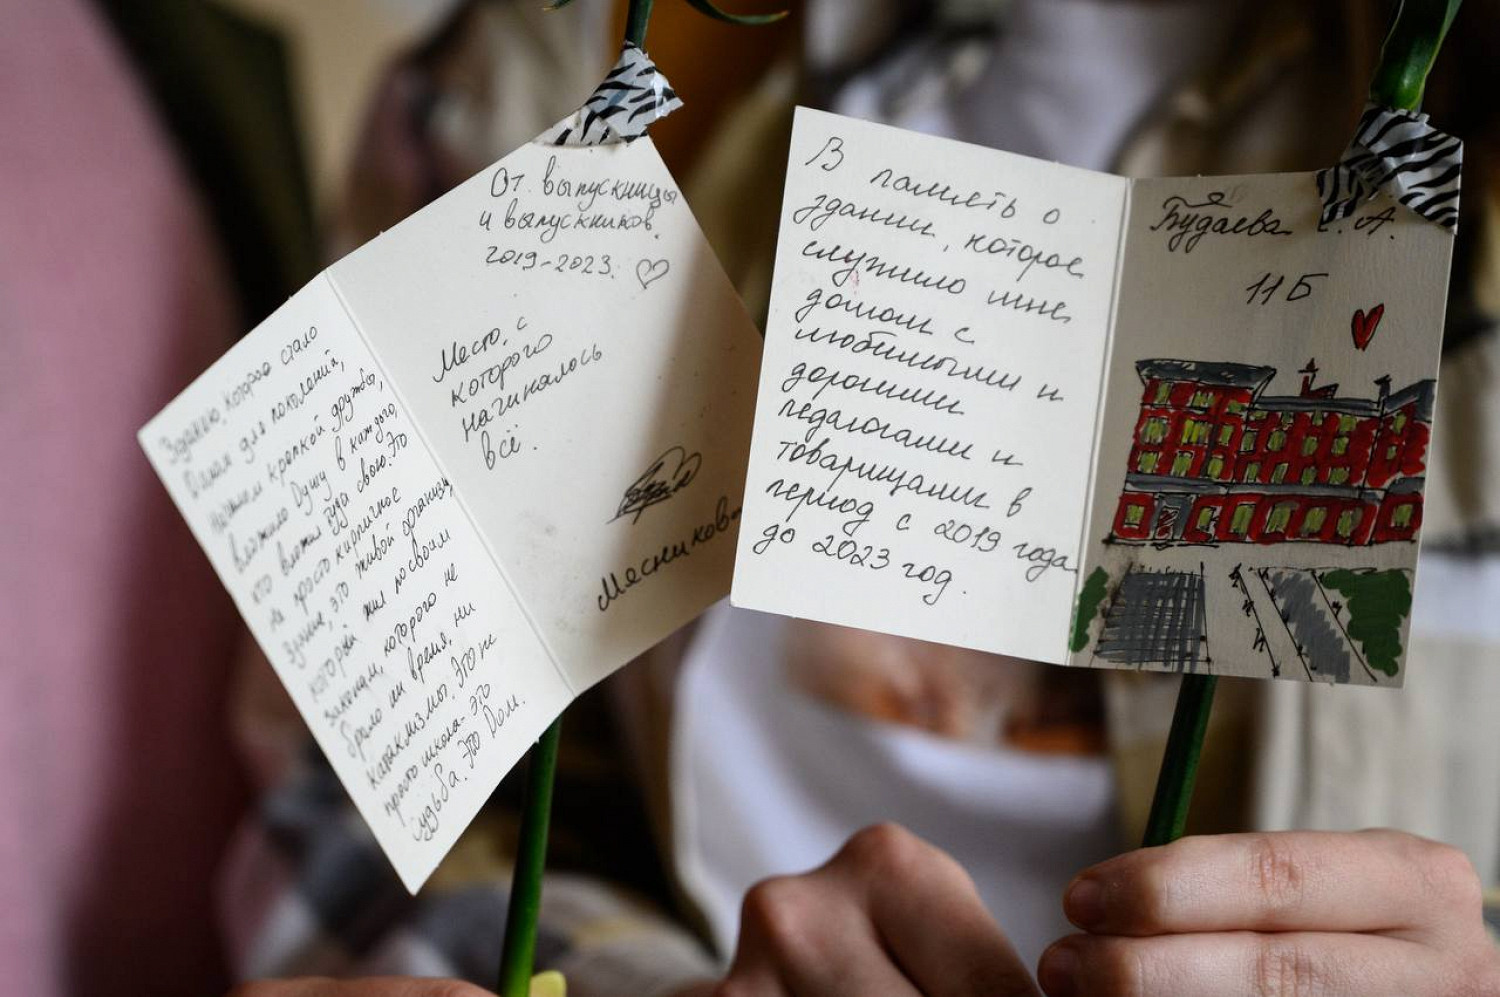 Зданию, которое стало
Домом для поколений,
началом крепкой дружбы,
вложило Душу в каждого,
кто вложил туда свою. Это
не просто кирпичное
здание, это живой организм,
который жил по своим
законам, которого не
брало ни время, ни
катаклизмы. Это не
просто школа - это
судьба. Это Дом.
От выпускницы
и выпускников.
2019-2023.
Место, с
которого
начиналось
всё.
В память о
здании, которое
служило мне
домом с
любимыми и
дорогими
педагогами и
товарищами в
период с 2019 года
до 2023 год.
Будаева С. А.
11 Б